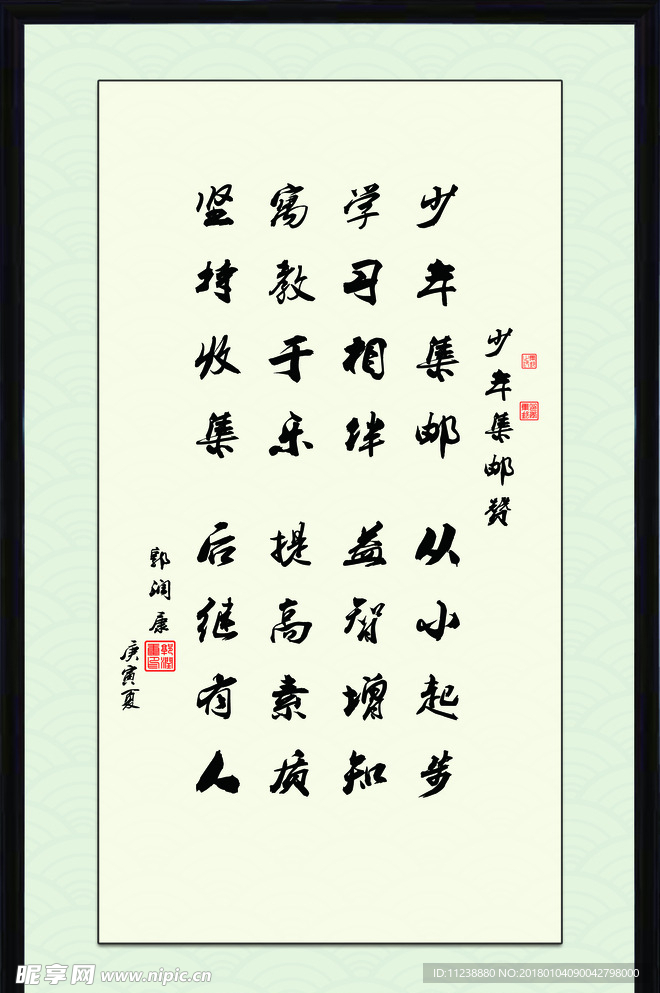 少年集邮赞
少年集邮 从小起步
学习相伴 益智增知
寓教于乐 提高素质
坚持收集 后继有人
郭润康
庚寅夏
昵享网 www.nipic.cn
ID:11238880 NO:20180104090042798000